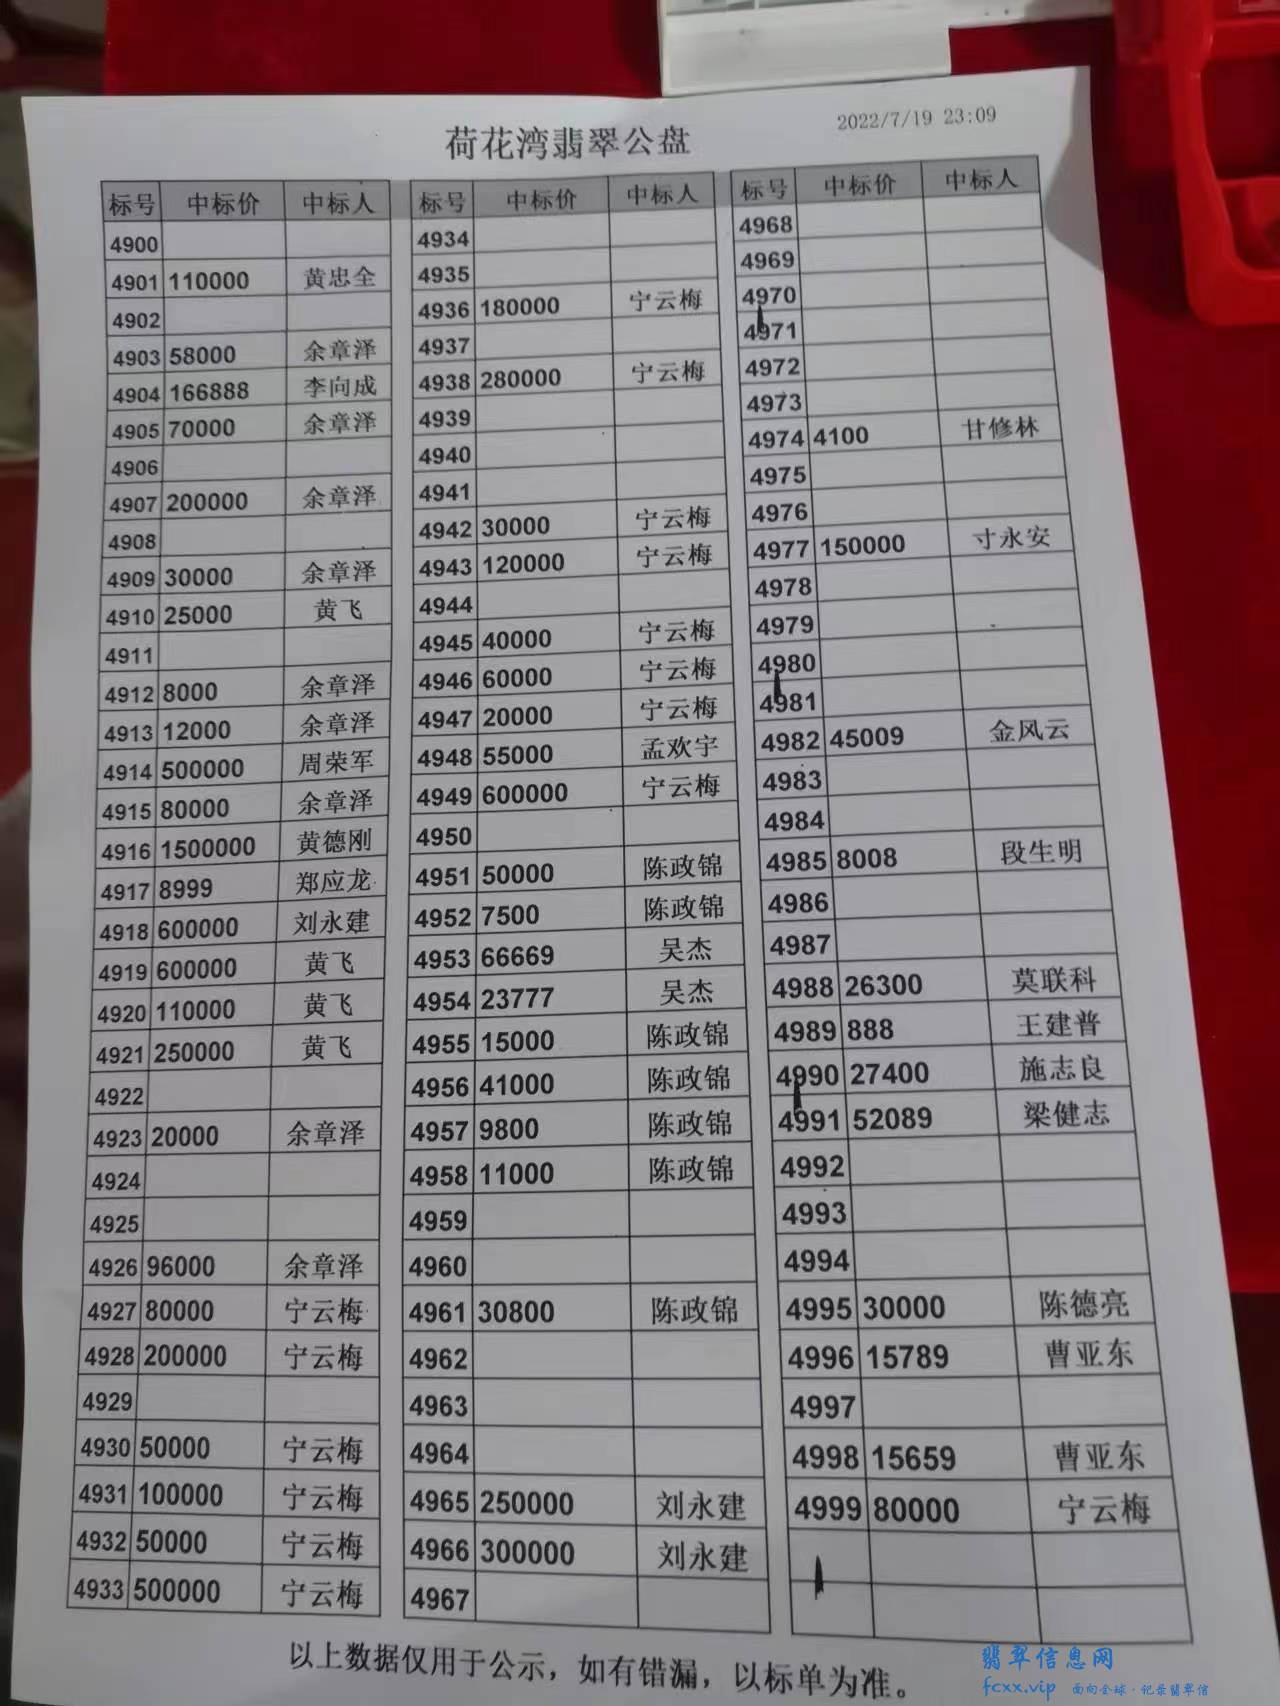 荷花湾翡翠公盘
2022/7/19 23:09
标号 中标价 中标人
4900
4901 110000 黄忠全
4902
4903 58000 余章泽
4904 166888 李向成
4905 70000 余章泽
4906
4907 200000 余章泽
4908
4909 30000 余章泽
4910 25000 黄飞
4911
4912 8000 余章泽
4913 12000 余章泽
4914 500000 周荣军
4915 80000 余章泽
4916 1500000 黄德刚
4917 8999 郑应龙
4918 600000 刘永建
4919 600000 黄飞
4920 110000 黄飞
4921 250000 黄飞
4922
4923 20000 余章泽
4924
4925
4926 96000 余章泽
4927 80000 宁云梅
4928 200000 宁云梅
4929
4930 50000 宁云梅
4931 100000 宁云梅
4932 50000 宁云梅
4933 500000 宁云梅
标号 中标价 中标人
4934
4935
4936 180000 宁云梅
4937
4938 280000 宁云梅
4939
4940
4941
4942 30000 宁云梅
4943 120000 宁云梅
4944
4945 40000 宁云梅
4946 60000 宁云梅
4947 20000 宁云梅
4948 55000 孟欢宇
4949 600000 宁云梅
4950
4951 50000 陈政锦
4952 7500 陈政锦
4953 66669 吴杰
4954 23777 吴杰
4955 15000 陈政锦
4956 41000 陈政锦
4957 9800 陈政锦
4958 11000 陈政锦
4959
4960
4961 30800 陈政锦
4962
4963
4964
4965 250000 刘永建
4966 300000 刘永建
4967
标号 中标价 中标人
4968
4969
4970
4971
4972
4973
4974 4100 甘修林
4975
4976
4977 150000 寸永安
4978
4979
4980
4981
4982 45009 金风云
4983
4984
4985 8008 段生明
4986
4987
4988 26300 莫联科
4989 888 王建普
4990 27400 施志良
4991 52089 梁健志
4992
4993
4994
4995 30000 陈德亮
4996 15789 曹亚东
4997
4998 15659 曹亚东
4999 80000 宁云梅
以上数据仅用于公示，如有错漏，以标单为准。
翡翠信息网
fcxx.vip 面向全球·记录翡翠信